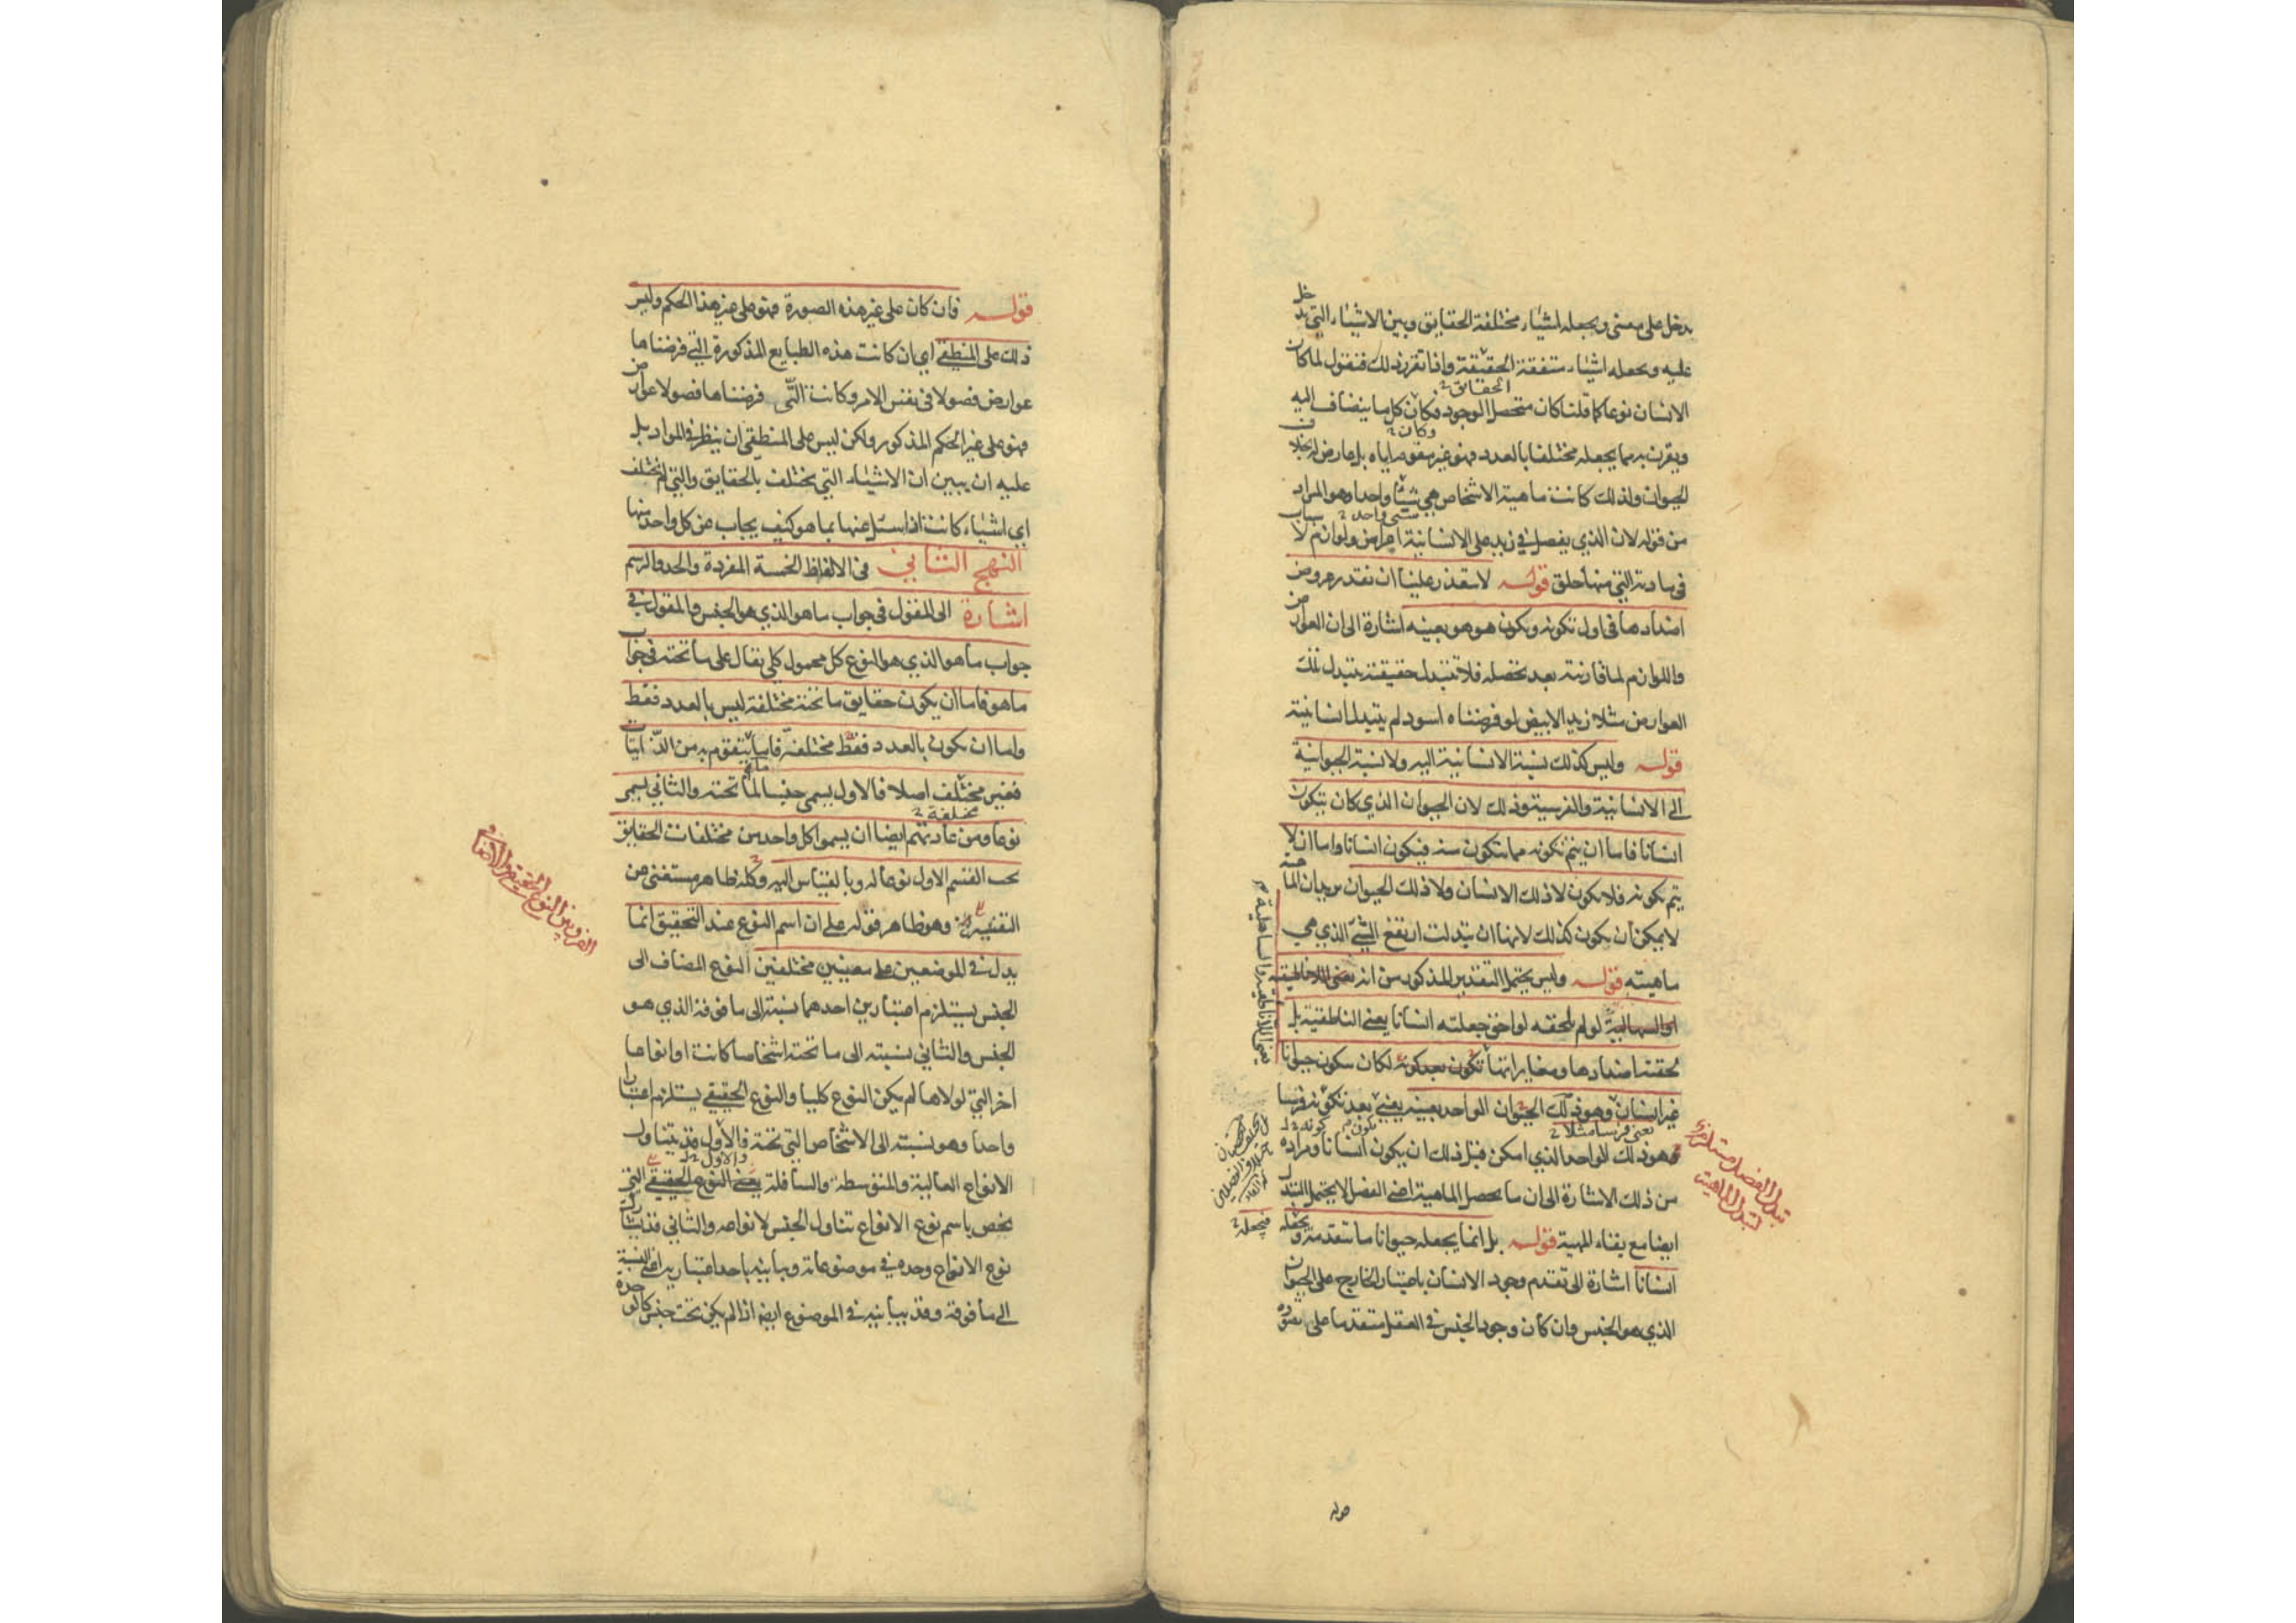 يدخل على معنى ويجعله اشياء مختلفة الحقايق وبين الاشياء التي تدخل
عليه ويجعله اشياء متفقة الحقيقة واذا تقرر ذلك فنقول لما كان
الحقايق
الانسان نوعا كما قلنا كان متحصل الوجود فكان كل ما ينضاف اليه
وكان
ويقرن به مما يجعله مختلفا بالعدد فهو غير مقوم اياه بل عارض له بخلاف
الحيوان ولذلك كانت ماهية الاشخاص هي شيئا واحدا وهو المراد
شيء واحد
من قوله لان الذي يفصل في زيد على الانسانية اعراض ولوازم لاسباب
في مادته التي منها خلق قوله لا يتعذر علينا ان نقدر عروض
اضدادها في اول تكونه ويكون هو هو بعينه اشارة الى ان العوارض
واللوازم لما قارنته بعد تحصله فلا تتبدل حقيقته بتبدل تلك
العوارض مثلا زيد الابيض لو فرضناه اسود لم يتبدل انسانيته
قوله وليس كذلك نسبة الانسانية اليه ولا نسبة الحيوانية
الى الانسانية والفرسية وذلك لان الحيوان الذي كان يتكون
انسانا فاما ان يتم تكونه مما يتكون منه فيكون انسانا واما ان لا
يتم تكونه فلا يكون لا ذلك الانسان ولا ذلك الحيوان بيان الماهية
لا يمكن ان يكون كذلك لانها ان تبدلت ارتفع الشيء الذي هي
ماهيته قوله وليس يحتمل التقدير المذكور من انه
لو لم تلحقه لواحق جعلته انسانا يعني الناطقية بل
لحقته اضدادها ومغايراتها لكان يتكون حيوانا
غير انسان وهو ذلك الحيوان الواحد بعينه يعني بعد تكونه فرسا
يعني فرسا مثلا
وهو ذلك الواحد الذي امكن قبل ذلك ان يكون انسانا ومراده
من ذلك الاشارة الى ان ما يحصل الماهية اعني الفصل لا يحتمل التبدل
ايضا مع بقاء المهية قوله بل انما يجعله حيوانا ما يتقدمه ويجعله
فيجعله
انسانا اشارة الى تقدم وجود الانسان باعتبار الخارج على الحيوان
الذي هو الجنس وان كان وجود الجنس في العقل متقدما على
تبدل الفصل مستلزم
لتبدل الماهية
قوله
قوله فان كان على غير هذه الصورة فهو على غير هذا الحكم وليس
ذلك على المنطقي اي ان كانت هذه الطبايع المذكورة التي فرضناها
عوارض فصولا في نفس الامر وكانت التي فرضناها فصولا عوارض
فهو على غير الحكم المذكور ولكن ليس على المنطقي ان ينظر في المواد بل
عليه ان يبين ان الاشياء التي يختلف بالحقايق والتي لم تختلف
اي اشياء كانت اذا سئل عنها بما هو كيف يجاب عن كل واحد منها
النهج الثاني في الالفاظ الخمسة المفردة والحد والرسم
اشارة الى المقول في جواب ما هو الذي هو الجنس والمقول في
جواب ما هو الذي هو النوع كل محمول كلي يقال على ما تحته في جواب
ما هو فاما ان يكون حقايق ما تحته مختلفة ليس بالعدد فقط
واما ان يكون بالعدد فقط مختلفة فاما ما يتقوم به من الذاتيات
فغير مختلف اصلا فالاول يسمى جنسا لما تحته والثاني يسمى
مختلفة
نوعا ومن عادتهم ايضا ان يسموا كل واحد من مختلفات الحقايق
تحت القسم الاول نوعا له وبالقياس اليه وكله ظاهر مستغنى عن
التفسير وهو ظاهر قوله على ان اسم النوع عند التحقيق انما
يدل في الموضعين على معنيين مختلفين النوع المضاف الى
الجنس يستلزم اعتبارين احدهما نسبته الى ما فوقه الذي هو
الجنس والثاني نسبته الى ما تحته اشخاصا كانت او انواعا
اخر التي لولاها لم يكن النوع كليا والنوع الحقيقي يستلزم اعتبارا
واحدا وهو نسبته الى الاشخاص التي تحته فالاول قد يتناول
والاول
الانواع العالية والمتوسطة والسافلة يعني النوع الحقيقي التي
يخص باسم نوع الانواع تناول الجنس لانواعه والثاني قد يشارك
نوع الانواع وحده في موضوعاته ويباينه باحد اعتباريه اعني النسبة
الى ما فوقه وقد يباينه في الموضوع ايضا اذا لم يكن تحت جنس كالوحدة
الفرق بين النوع الحقيقي والاضافي